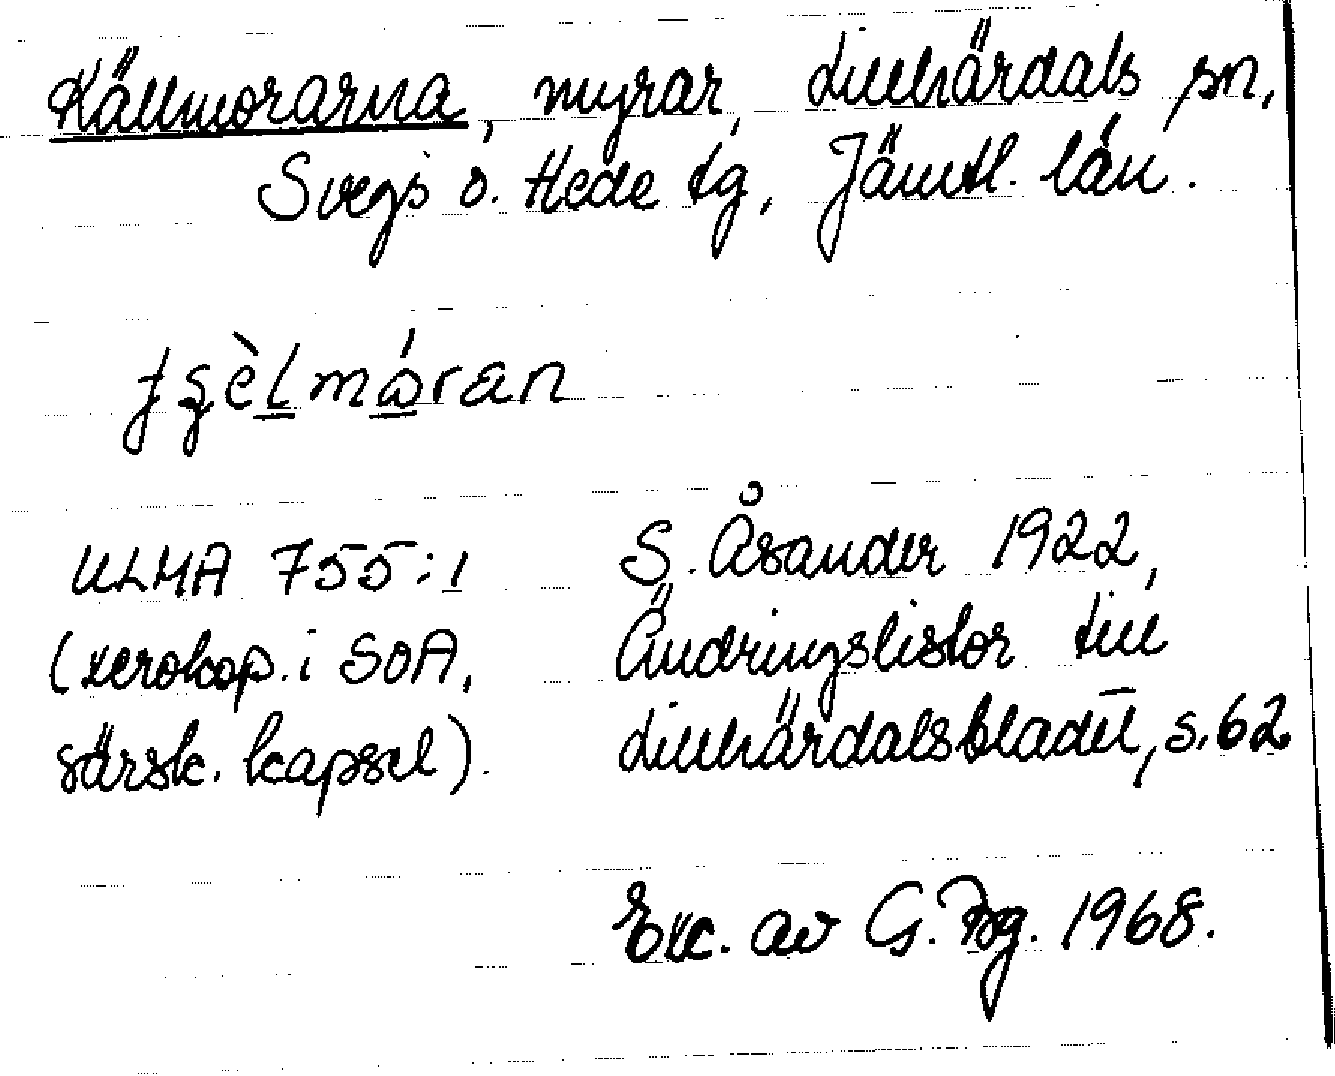 Källmorarna, myrar, Lillhärdals sn,
Svegs o. Hede tg, Jämtl. län.
ʄʂèlmáran
ULMA 755:1
(xerokop. i SOA,
särsk. kapsel).
S. Åsander 1922,
Ändringslistor till
Lillhärdalsbladet, s. 62
Exc. av G. 1968.